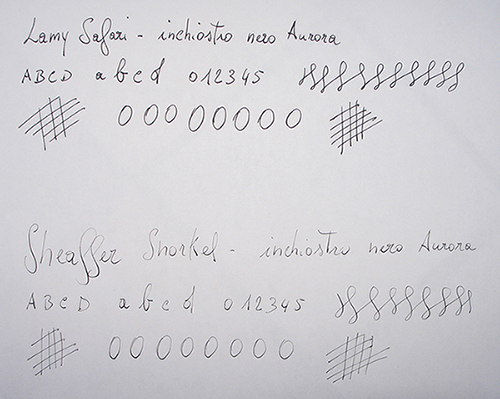 Lamy Safari - inchiostro nero Aurora
ABCD abcd 012345
Sheaffer Snorkel - inchiostro nero Aurora
ABCD abcd 012345